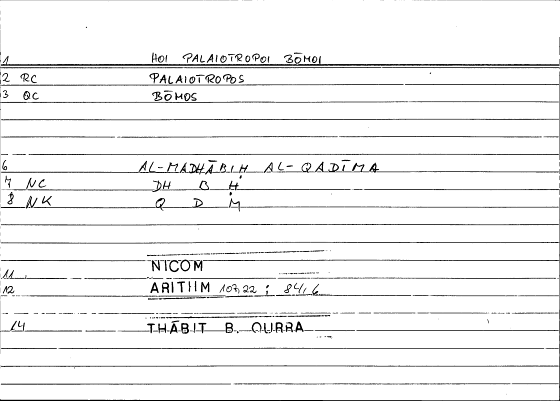 1 HOI PALAIOTROPOI BŌMOI
2 RC PALAIOTROPOS
3 QC BŌMOS
6 AL-MADHĀBIḤ AL-QADĪMA
7 NC DH B Ḥ
8 NK Q D M
11 NICOM
12 ARITHM 107,22 ; 84,6
14 THĀBIT B. QURRA